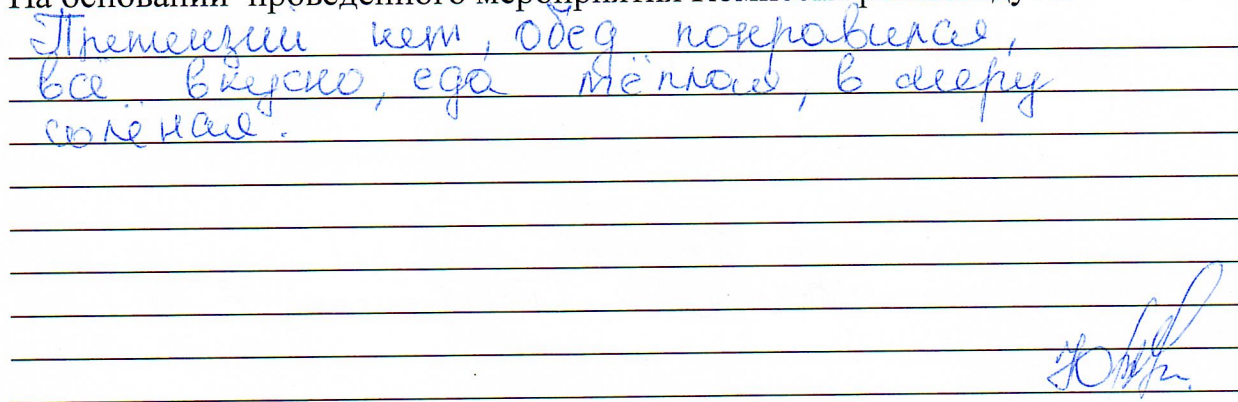 На основании проведенного мероприятия
Претензии нет, обед понравился,
всё вкусно, еда тёплая, в меру
солёная.